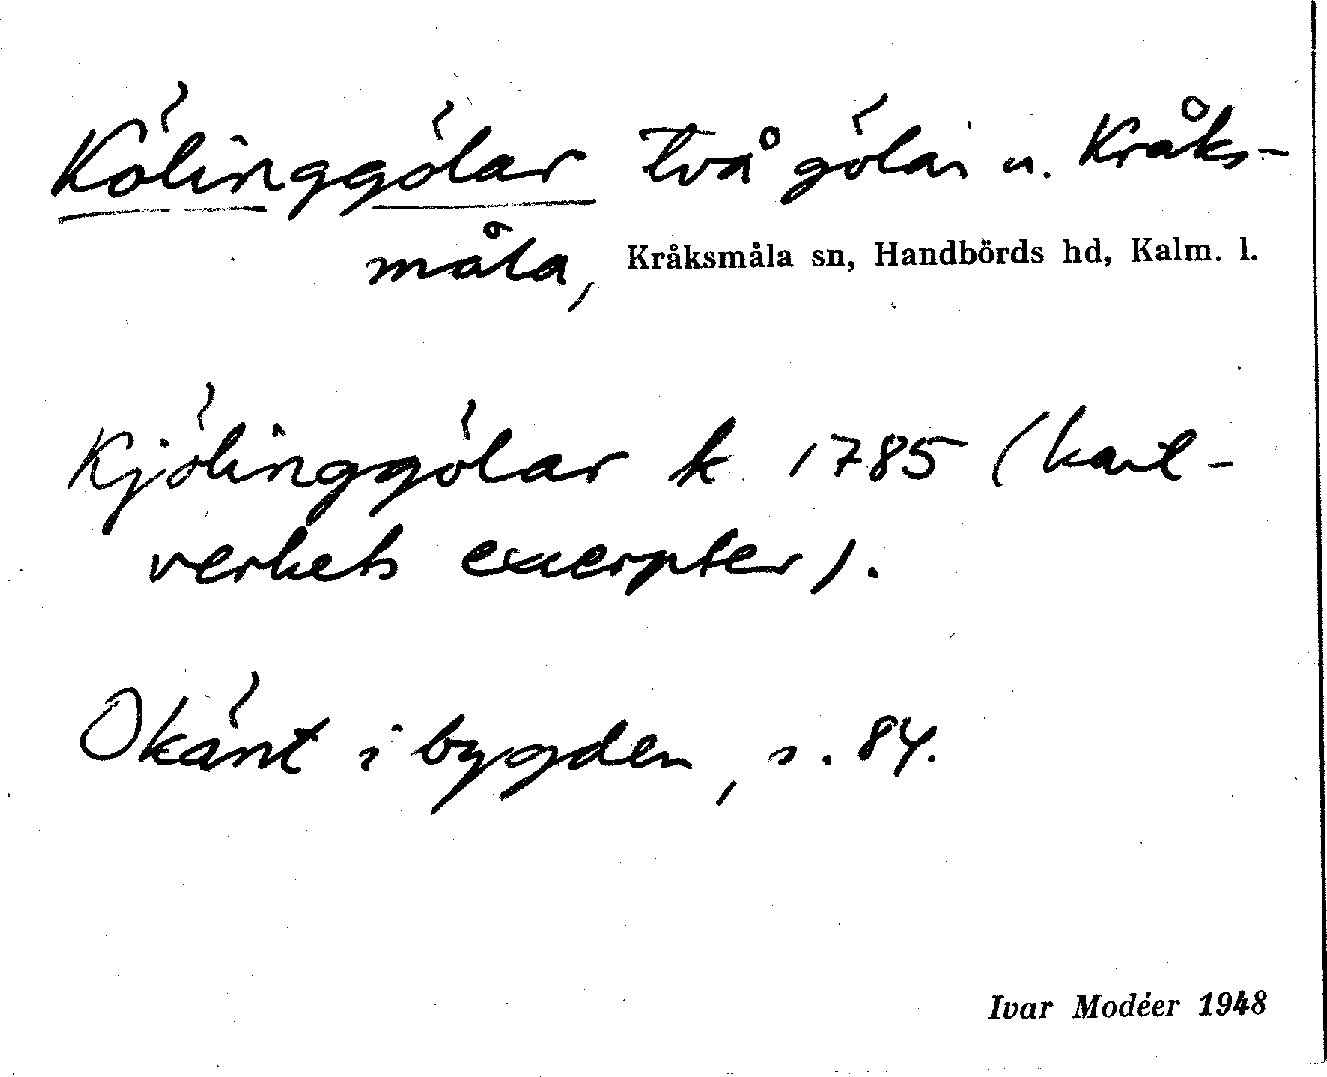 Kölinggölar två gölar u. Kråks-
måla, Kråksmåla sn, Handbörds hd, Kalm. l.
Kjölinggölar k 1785 (kart-
verkets excerpter).
Okänt i bygden, s. 84.
Ivar Modéer 1948